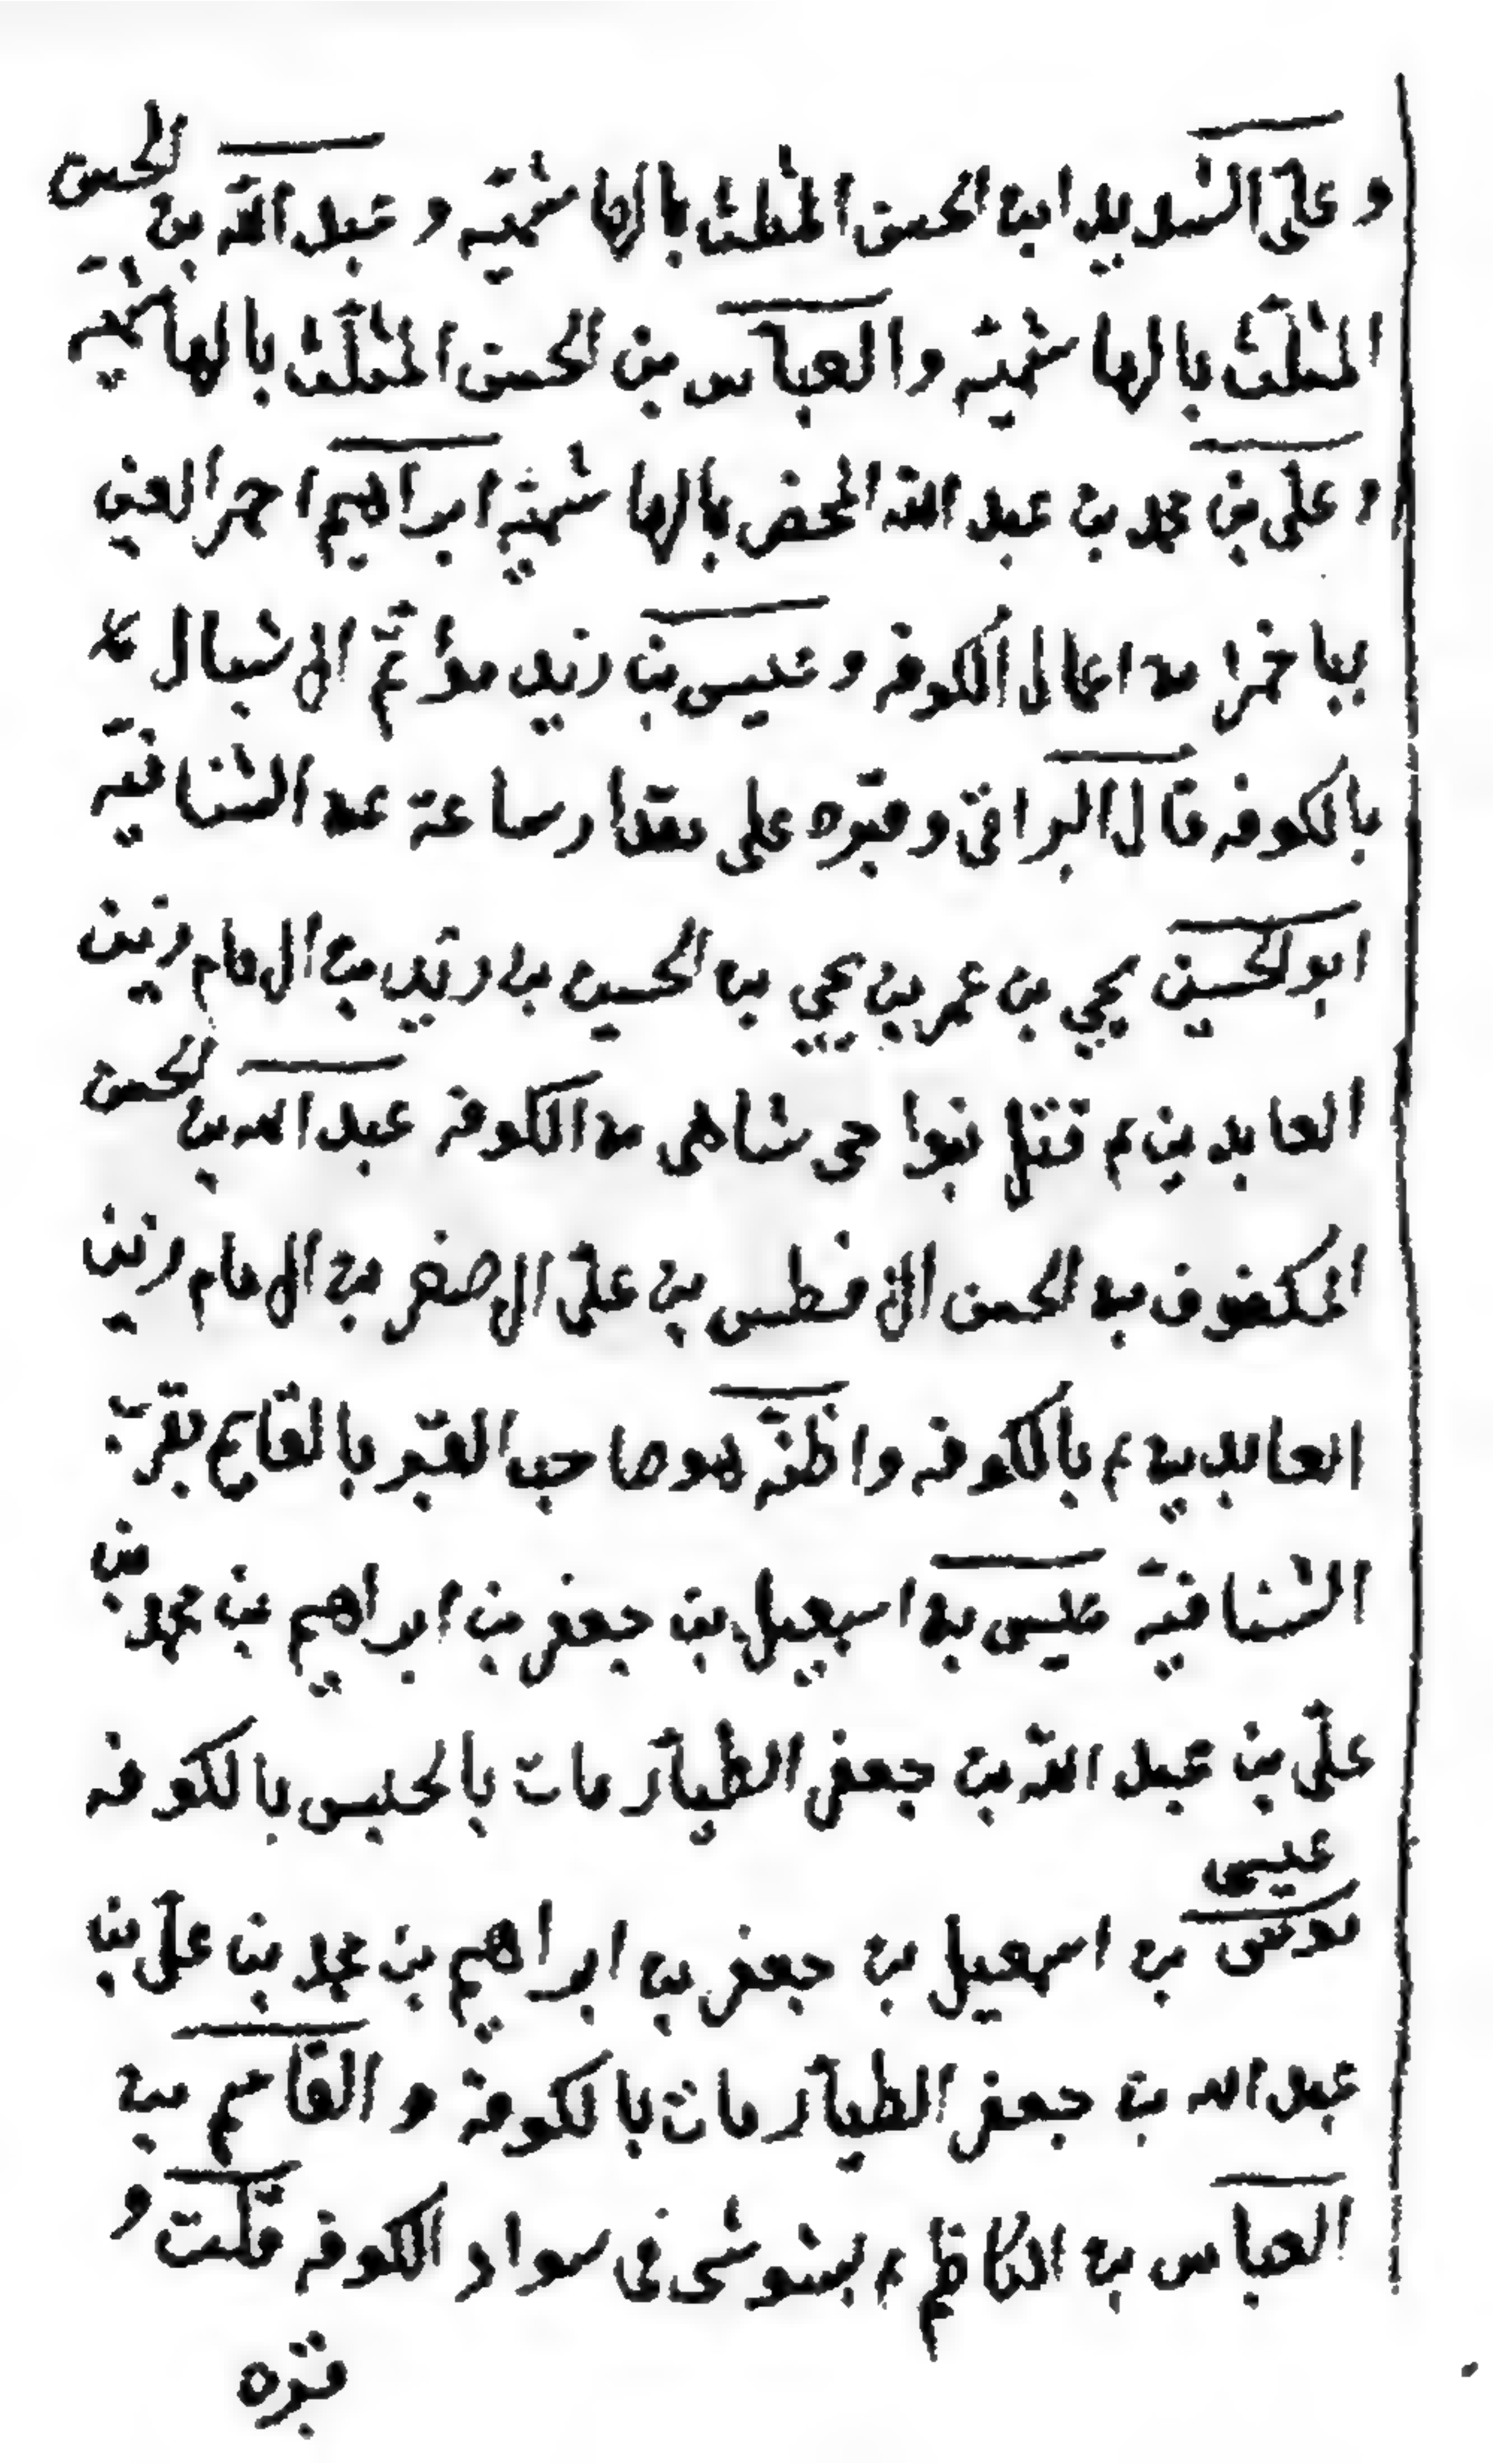 وعلى الشديد ابن الحسن المثلث بالهاشميّه وعبد الله بن الحسن
المثلّث بالهاشميّه والعباس بن الحسن المثلّث بالهاشميّه
وعلى بن محمد بن عبد الله المحض بالهاشميّه ابراهيم احمر العين
بباخمرا من اعمال الكوفه وعيسى بن زيد مؤتم الاشبال
بالكوفه قال البراقى وقبره على مقدار ساعة عن الشنافيّه
ابو الحسين يحيى بن عمر بن يحيى بن الحسين بن زيد بن الامام زين
العابدين ع قتل بنواحى شاهى من الكوفه عبد الله بن الحسن
المكفوف بن الحسن الافطس بن علىّ الاصغر بن الامام زين
العابدين ع بالكوفه واظنّه هو صاحب القبر بالقايم بقرب
الشنافيّة عيسى بن اسمعيل بن جعفر بن ابراهيم بن محمد بن
علىّ بن عبد الله بن جعفر الطيّار مات بالحبس بالكوفه
عيسى
بن اسمعيل بن جعفر بن ابراهيم بن محمد بن علىّ بن
عبد الله بن جعفر الطيّار مات بالكوفة والقاسم بن
العباس بن الكاظم ع بشوشى فى سواد الكوفه قلت و
قبره